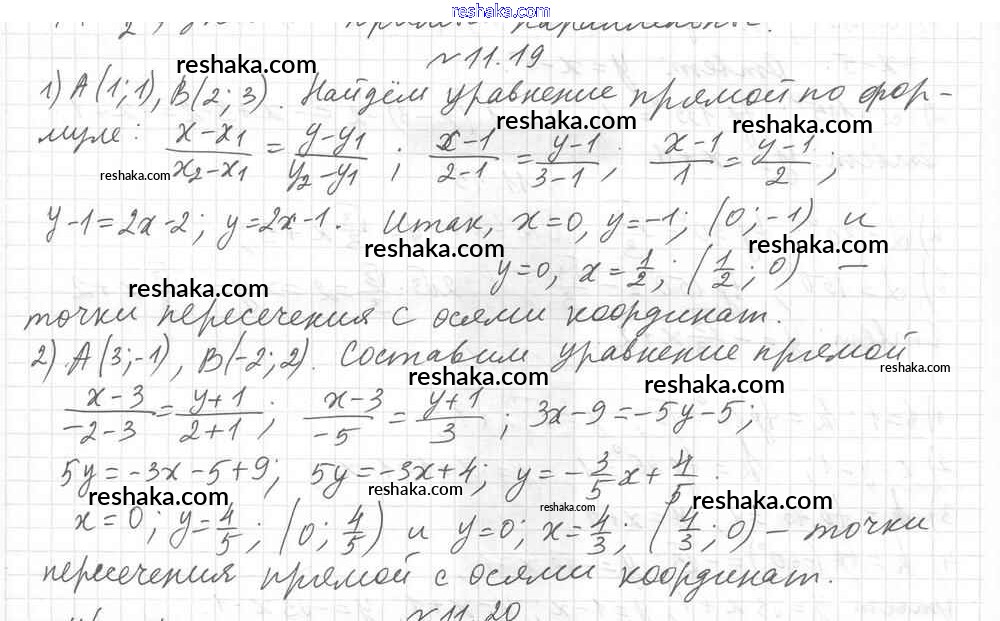 reshaka.com
№11.19
reshaka.com
1) A(1;1), B(2;3). Найдём уравнение прямой по фор-
reshaka.com reshaka.com
муле: (x-x₁)/(x₂-x₁) = (y-y₁)/(y₂-y₁); (x-1)/(2-1) = (y-1)/(3-1); (x-1)/1 = (y-1)/2;
reshaka.com
y-1=2x-2; y=2x-1. Итак, x=0, y=-1; (0;-1) и
reshaka.com reshaka.com
y=0, x=1/2; (1/2; 0) —
reshaka.com
точки пересечения с осями координат.
2) A(3;-1), B(-2;2). Составим уравнение прямой
reshaka.com reshaka.com reshaka.com
(x-3)/(-2-3) = (y+1)/(2+1); (x-3)/(-5) = (y+1)/3; 3x-9=-5y-5;
5y=-3x-5+9; 5y=-3x+4; y=-3/5x+4/5.
reshaka.com reshaka.com reshaka.com reshaka.com
x=0; y=4/5; (0; 4/5) и y=0; x=4/3; (4/3; 0) – точки
пересечения прямой с осями координат.
№11.20